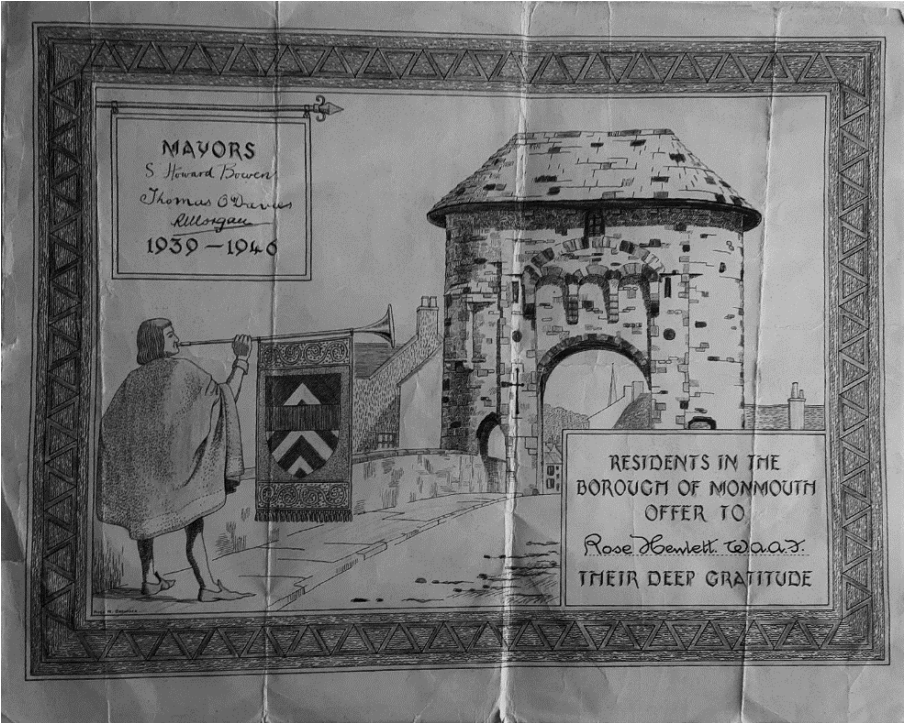 MAYORS
S. Howard Bowen
Thomas O Davies
RMorgan
1939 – 1946
RESIDENTS IN THE
BOROUGH OF MONMOUTH
OFFER TO
Rose Hewlett. W.a.a.F.
THEIR DEEP GRATITUDE